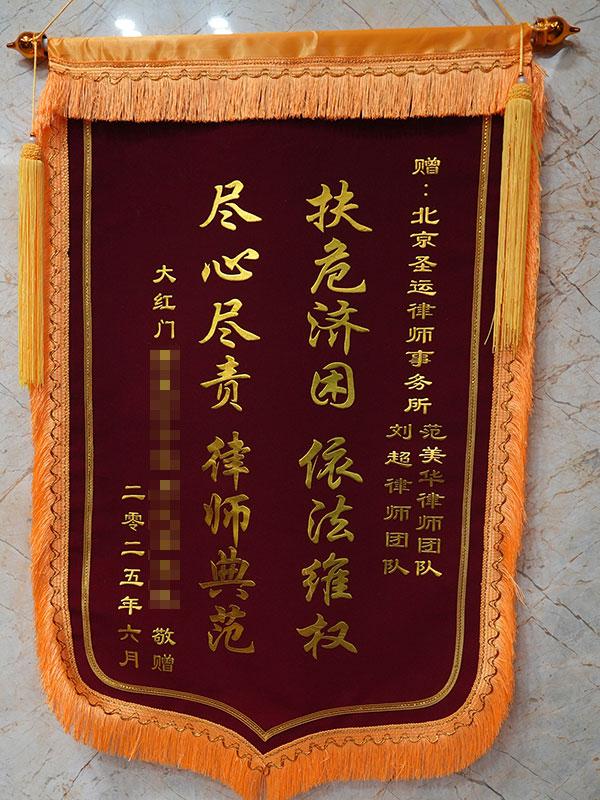 赠：北京圣运律师事务所
范美华律师团队
刘超律师团队
扶危济困 依法维权
尽心尽责 律师典范
大红门
敬赠
二零二五年六月